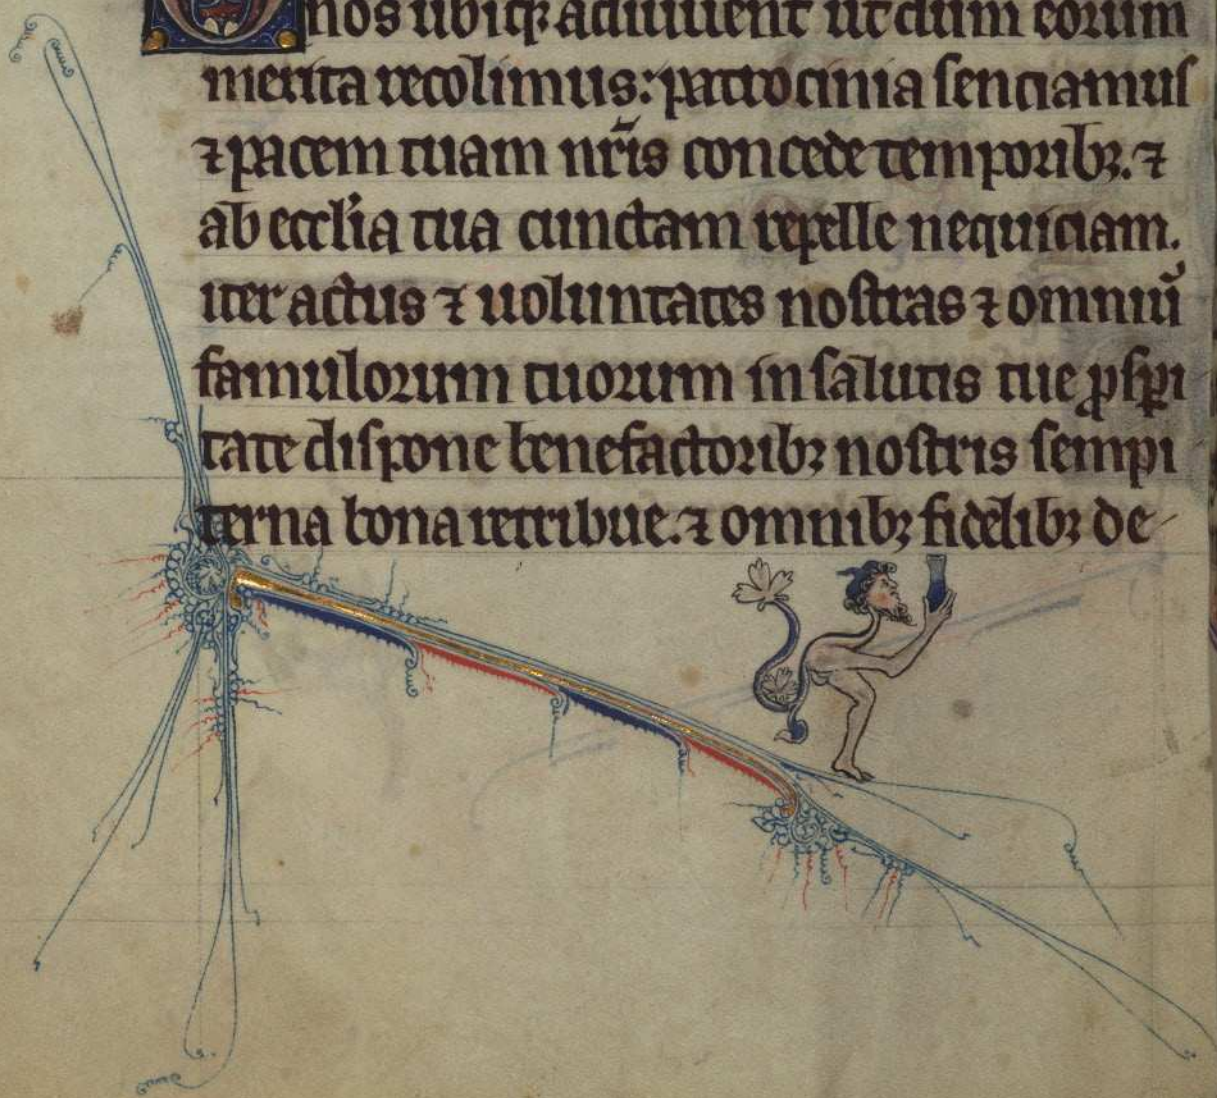 nos ubiqꝫ adiuuent ut dum eorum
merita recolimus: patrocinia senciamus
⁊ pacem tuam nr̃is concede temporibꝫ. ⁊
ab eccl'ia tua cunctam repelle nequiciam.
iter actus ⁊ uoluntates nostras ⁊ omniũ
famulorum tuorum in salutis tue ꝓsꝑi
tate dispone benefactoribꝫ nostris sempi
terna bona retribue. ⁊ omnibꝫ fidelibꝫ de